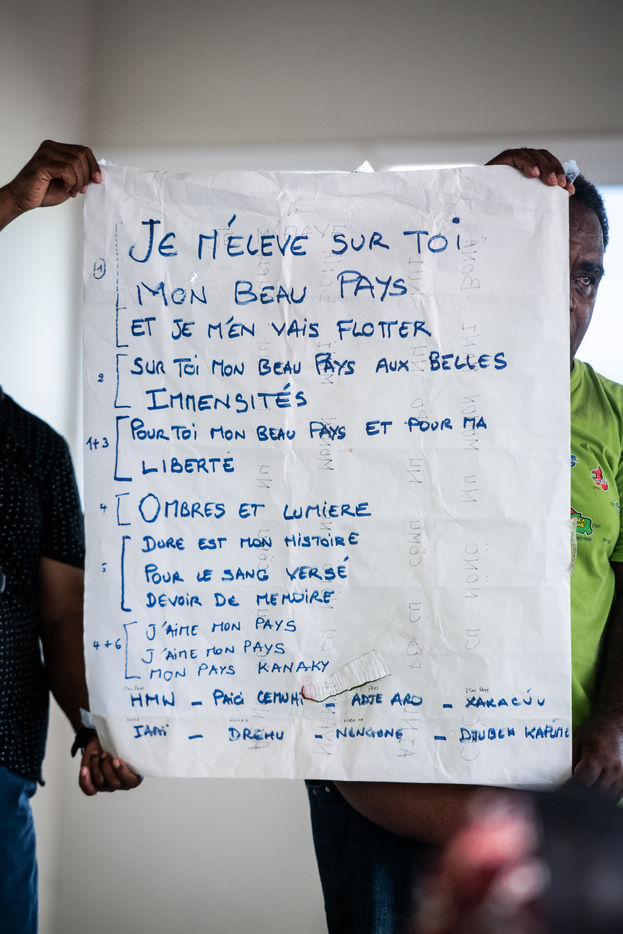 JE M'ÉLEVE SUR TOI
1
MON BEAU PAYS
ET JE M'EN VAIS FLOTTER
2 SUR TOI MON BEAU PAYS AUX BELLES
IMMENSITÉS
1+3 POUR TOI MON BEAU PAYS ET POUR MA
LIBERTÉ
4 OMBRES ET LUMIERE
DURE EST MON HISTOIRE
5 POUR LE SANG VERSÉ
DEVOIR DE MEMOIRE
J'AIME MON PAYS
4+6 J'AIME MON PAYS
MON PAYS KANAKY
HMW - PAICI CEMUHI - ADJE ARO - XARACUU
IAAI - DREHU - NENGONE - DJUBEA KAPUME